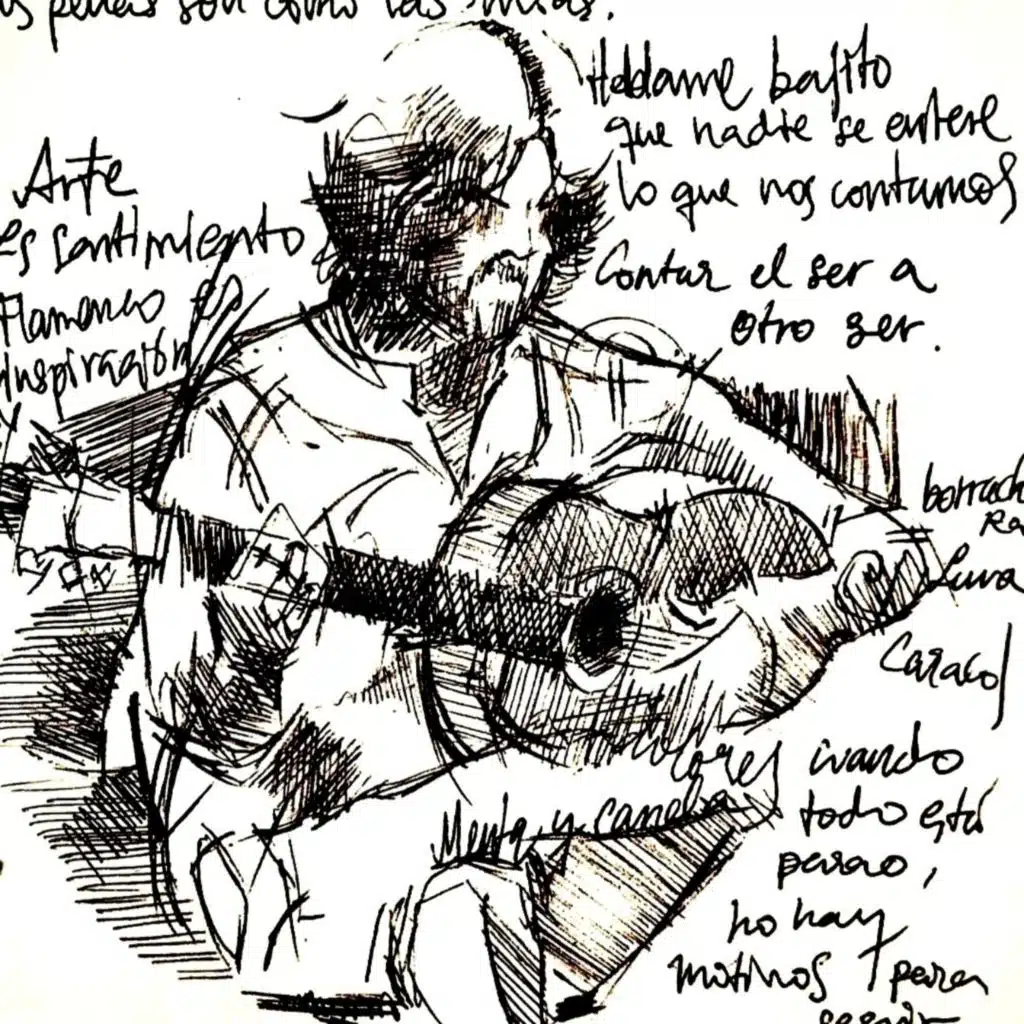 penas son como las mías.
Háblame bajito
que nadie se entere
lo que nos contamos
Contar el ser a
otro ser.
Arte
es sentimiento
Flamenco es
inspiración
y
borrach
Ra
Luna
Caracol
cuando
todo está
parao,
no hay
motivos para
Menta y canela